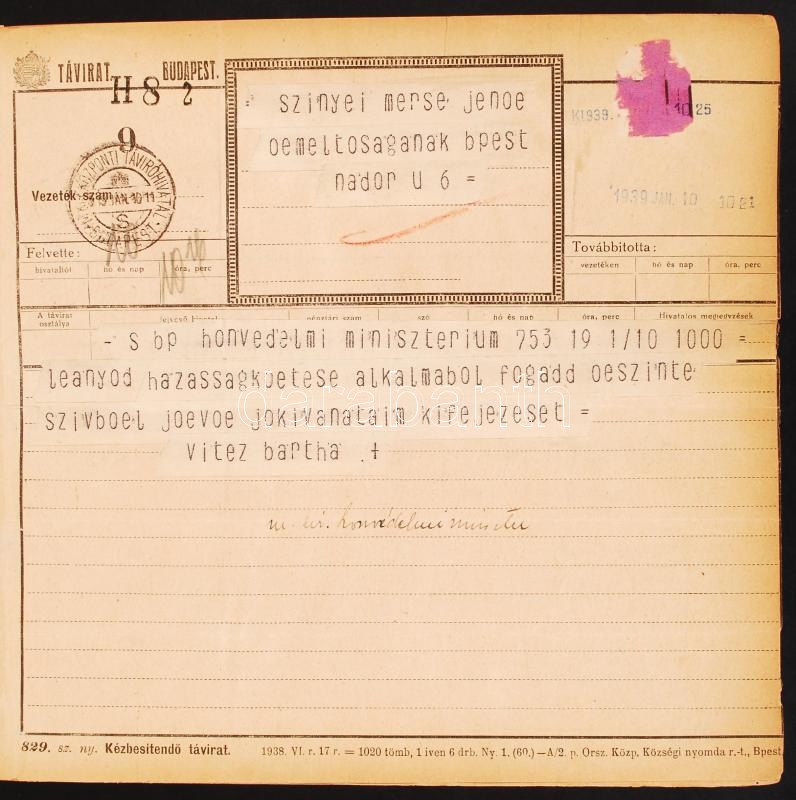 TÁVIRAT. BUDAPEST.
H 8 2
9
= szinyei merse jenoe
oemeltosaganak bpest
nador u 6 =
K1939. 10 25
1939 JAN. 10 1021
KÖZPONTI TÁVIRÓHIVATAL
JAN.10 11
S
BUDAPEST
Vezeték szám
Felvette:
hivataltól hó és nap óra, perc
Továbbitotta:
vezetéken hó és nap óra, perc
A távirat osztálya szó hó és nap óra, perc Hivatalos megjegyzések
- s bp honvedelmi miniszterium 753 19 1/10 1000 =
leanyod hazassagkoetese alkalmabol fogadd oeszinte
szivboel joevoe jokivanataim kifejezeset =
vitez bartha +
darabanth
m. kir. honvédelmi miniszter
829. sz. ny. Kézbesitendő távirat. 1938. VI. r. 17 r. = 1020 tömb, 1 iven 6 drb. Ny. 1. (60.) —A/2. p. Orsz. Közp. Községi nyomda r.-t., Bpest.